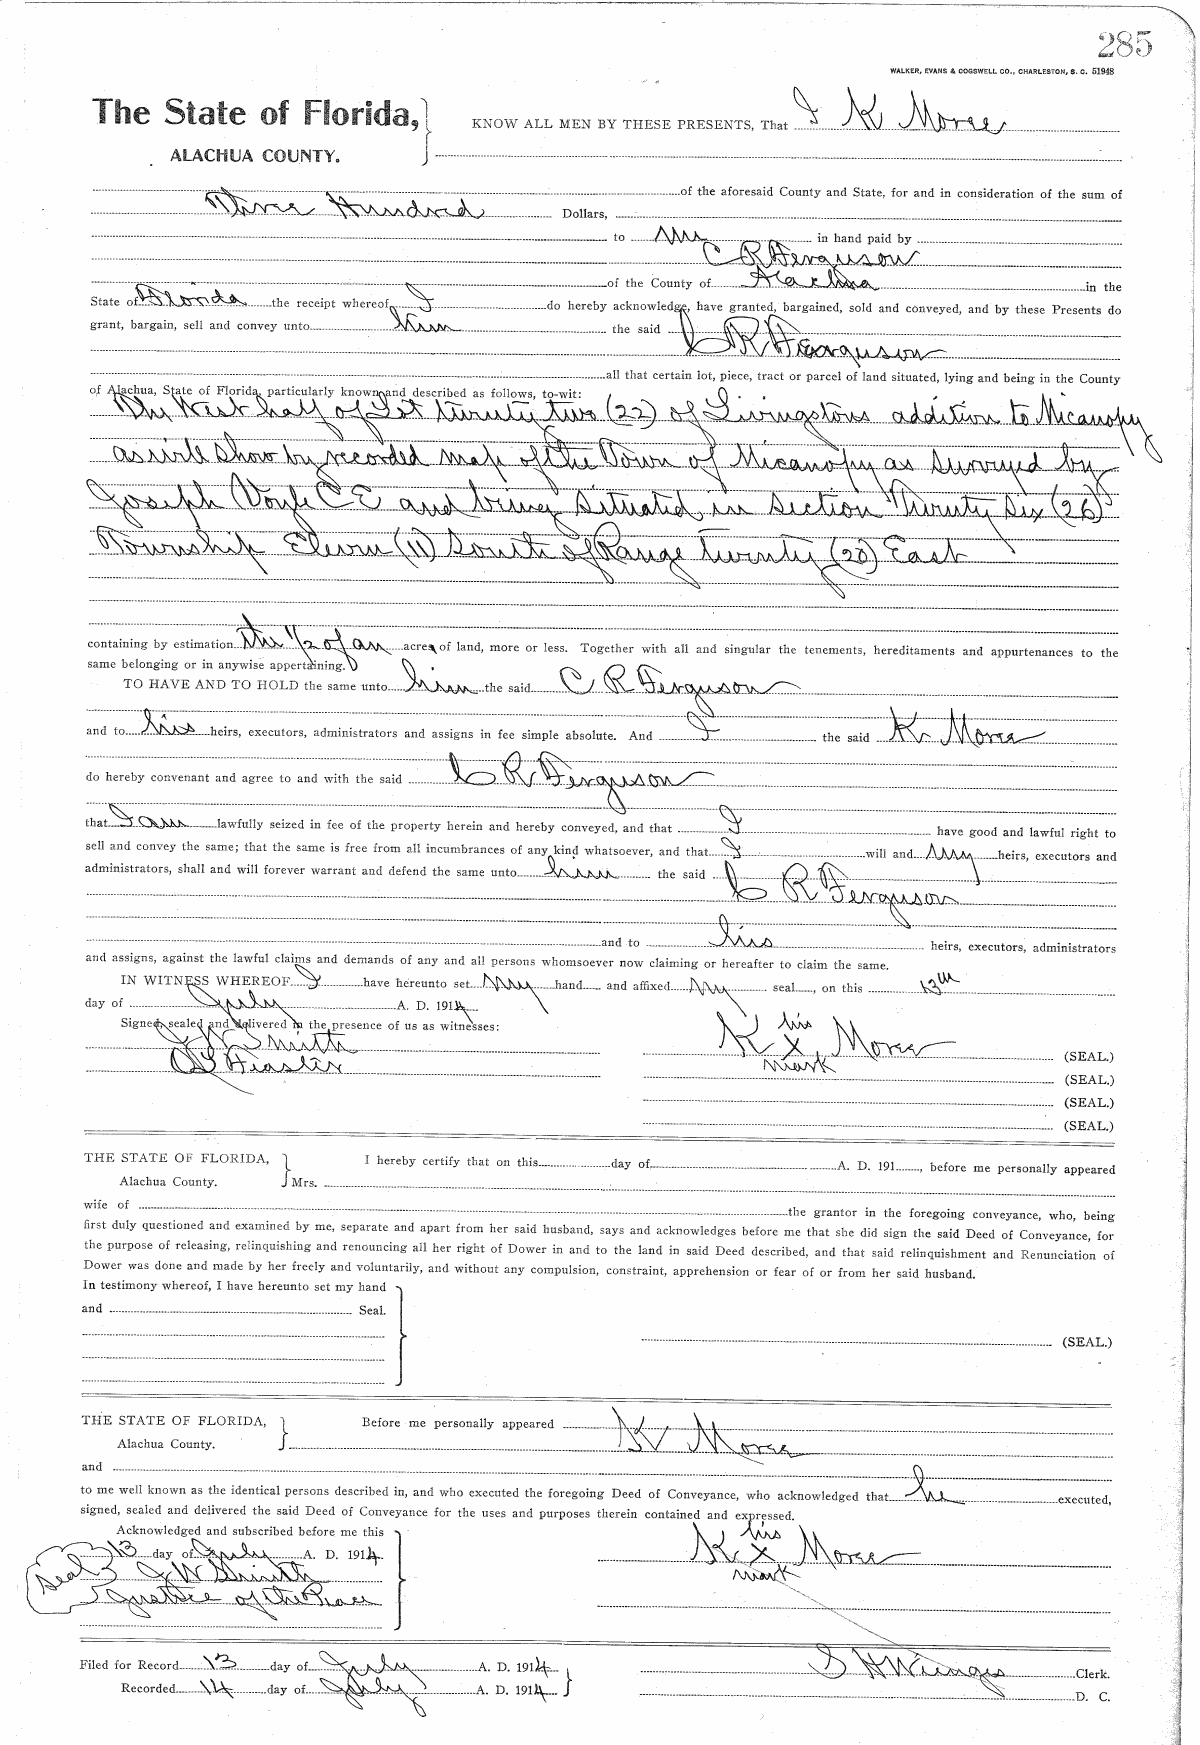 285
WALKER, EVANS & COGSWELL CO., CHARLESTON, S. C. 51948
The State of Florida,
KNOW ALL MEN BY THESE PRESENTS, That I K Morse
ALACHUA COUNTY.
of the aforesaid County and State, for and in consideration of the sum of
Three Hundred Dollars,
to me in hand paid by
C R Ferguson
of the County of Alachua in the
State of Florida the receipt whereof I do hereby acknowledge, have granted, bargained, sold and conveyed, and by these Presents do
grant, bargain, sell and convey unto him the said C R Ferguson
all that certain lot, piece, tract or parcel of land situated, lying and being in the County
of Alachua, State of Florida, particularly known and described as follows, to-wit:
The West half of Lot twenty two (22) of Livingstons addition to Micanopy
as will show by recorded map of the Town of Micanopy as surveyed by
Joseph Voyle C E and being situated in section Twenty Six (26)
Township Eleven (11) South of Range twenty (20) East
containing by estimation the 1/2 of an acre of land, more or less. Together with all and singular the tenements, hereditaments and appurtenances to the
same belonging or in anywise appertaining.
TO HAVE AND TO HOLD the same unto him the said C R Ferguson
and to his heirs, executors, administrators and assigns in fee simple absolute. And I the said K. Morse
do hereby convenant and agree to and with the said C R Ferguson
that I am lawfully seized in fee of the property herein and hereby conveyed, and that I have good and lawful right to
sell and convey the same; that the same is free from all incumbrances of any kind whatsoever, and that I will and my heirs, executors and
administrators, shall and will forever warrant and defend the same unto him the said C R Ferguson
and to his heirs, executors, administrators
and assigns, against the lawful claims and demands of any and all persons whomsoever now claiming or hereafter to claim the same.
IN WITNESS WHEREOF I have hereunto set my hand and affixed my seal, on this 13th
day of July A. D. 1914
Signed, sealed and delivered in the presence of us as witnesses:
J W Smith
Feaster
K his x mark Morse (SEAL.)
(SEAL.)
(SEAL.)
(SEAL.)
THE STATE OF FLORIDA,
Alachua County.
I hereby certify that on this day of A. D. 191 , before me personally appeared
Mrs.
wife of the grantor in the foregoing conveyance, who, being
first duly questioned and examined by me, separate and apart from her said husband, says and acknowledges before me that she did sign the said Deed of Conveyance, for
the purpose of releasing, relinquishing and renouncing all her right of Dower in and to the land in said Deed described, and that said relinquishment and Renunciation of
Dower was done and made by her freely and voluntarily, and without any compulsion, constraint, apprehension or fear of or from her said husband.
In testimony whereof, I have hereunto set my hand
and Seal.
(SEAL.)
THE STATE OF FLORIDA,
Alachua County.
Before me personally appeared K Morse
and
to me well known as the identical persons described in, and who executed the foregoing Deed of Conveyance, who acknowledged that he executed,
signed, sealed and delivered the said Deed of Conveyance for the uses and purposes therein contained and expressed.
Acknowledged and subscribed before me this
13 day of July A. D. 1914
Seal J W Smith
Justice of the Peace
K his x mark Morse
Filed for Record 13 day of July A. D. 1914
S H Wienges Clerk.
Recorded 14 day of July A. D. 1914
D. C.